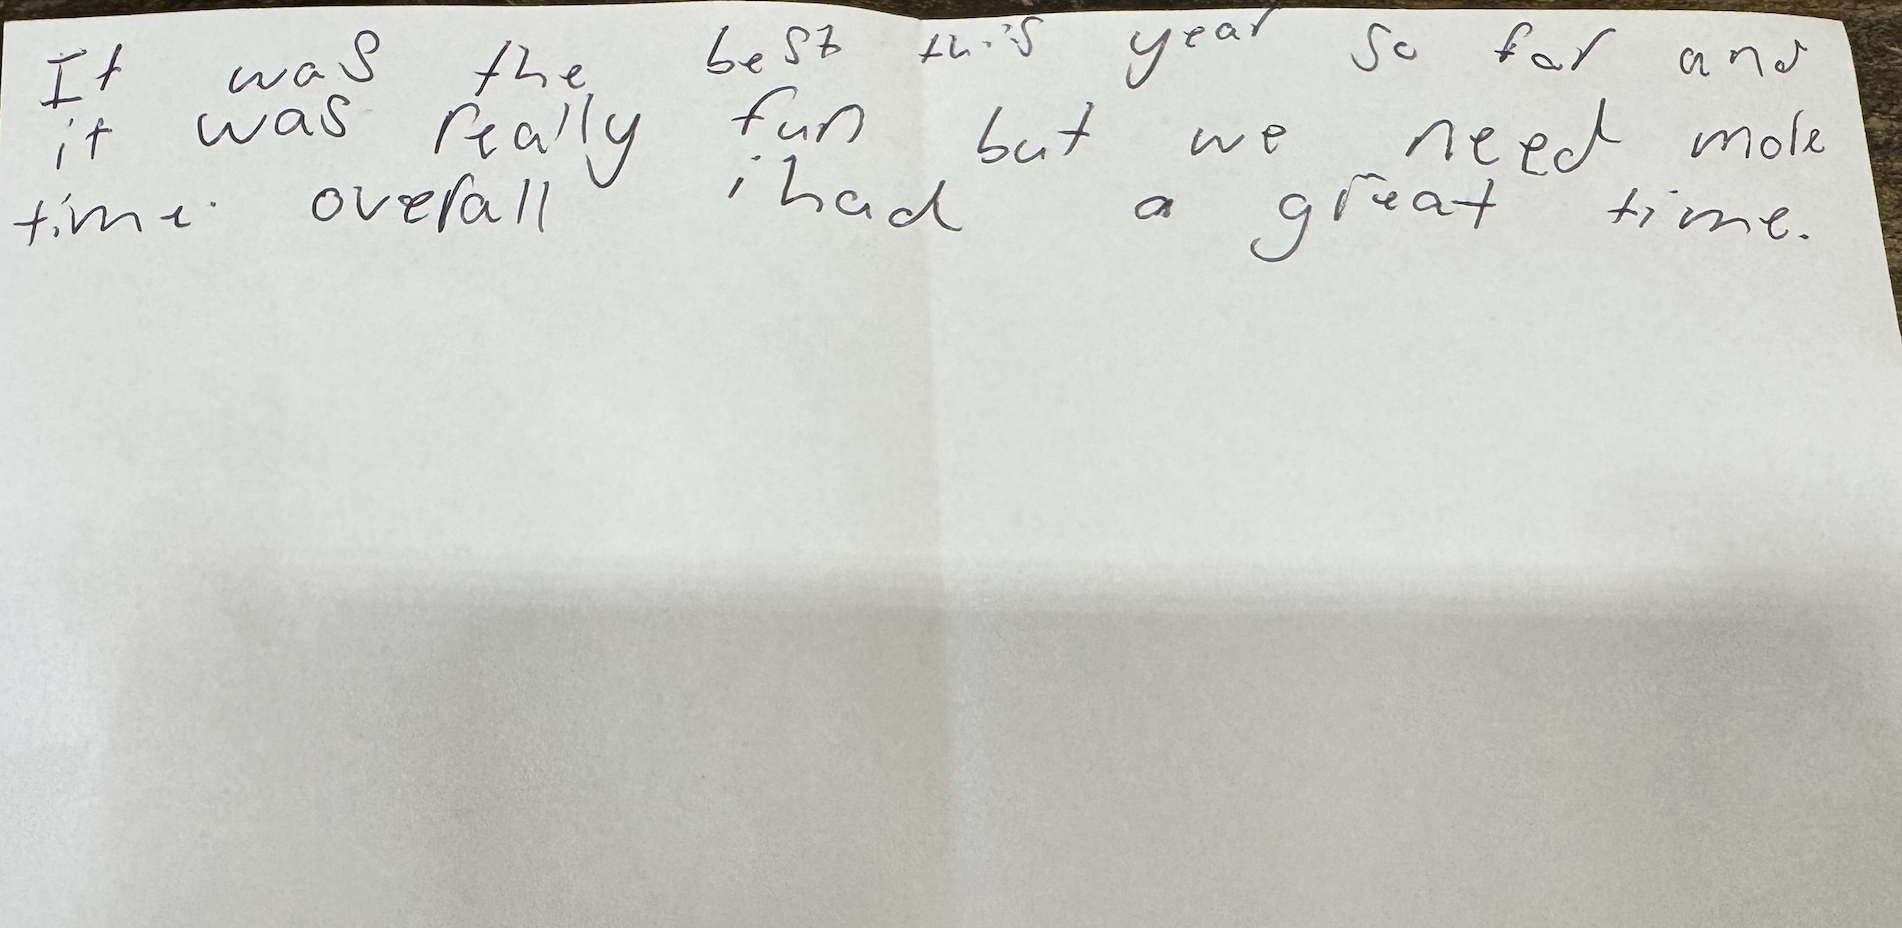 It was the best this year so far and
it was really fun but we need more
time. overall i had a great time.